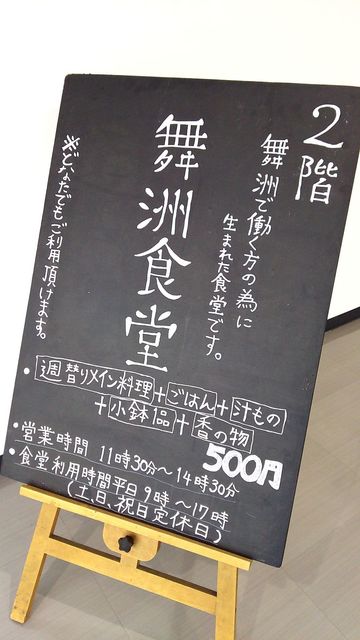 2階
舞洲で働く方の為に
生まれた食堂です。
舞洲食堂
※どなたでもご利用頂けます。
・週替りメイン料理+ごはん+汁もの
+小鉢1品+香の物
500円
・営業時間 11時30分〜14時30分
・食堂利用時間平日9時〜17時
(土、日、祝日定休日)